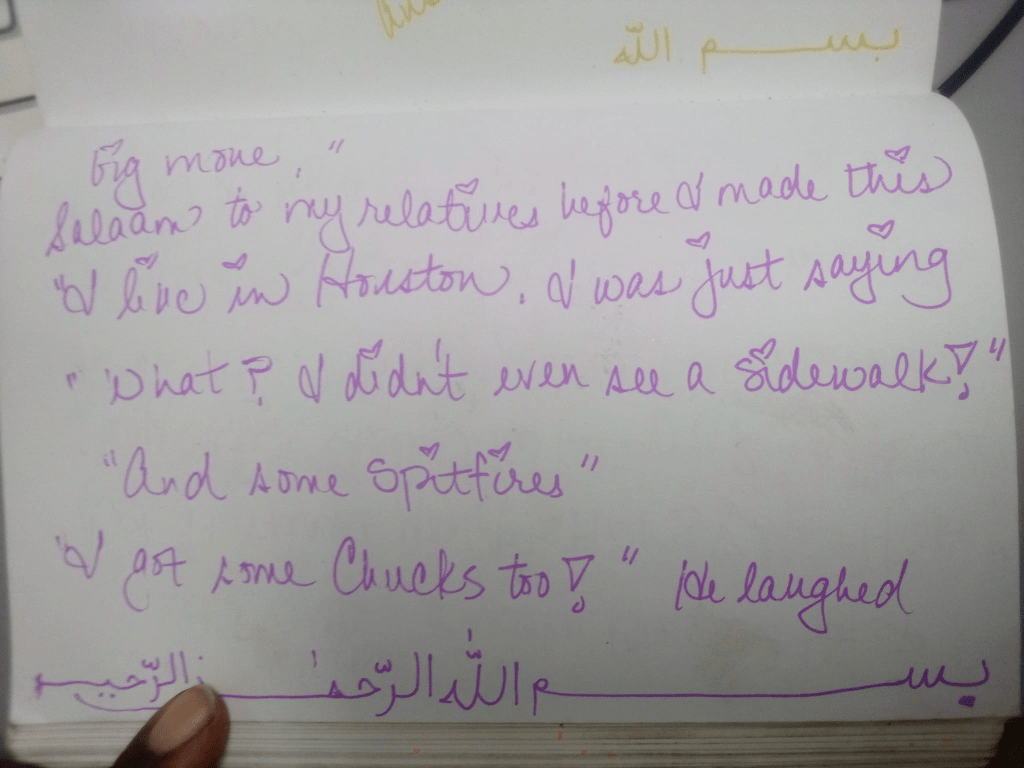 بســـم الله
big move."
Salaam to my relatives before I made this
"I live in Houston. I was just saying
"What? I didn't even see a sidewalk!"
"And some Spitfires"
"I got some Chucks too!" He laughed
بســـم اللّٰه الرّحمٰن الرّحيـــم